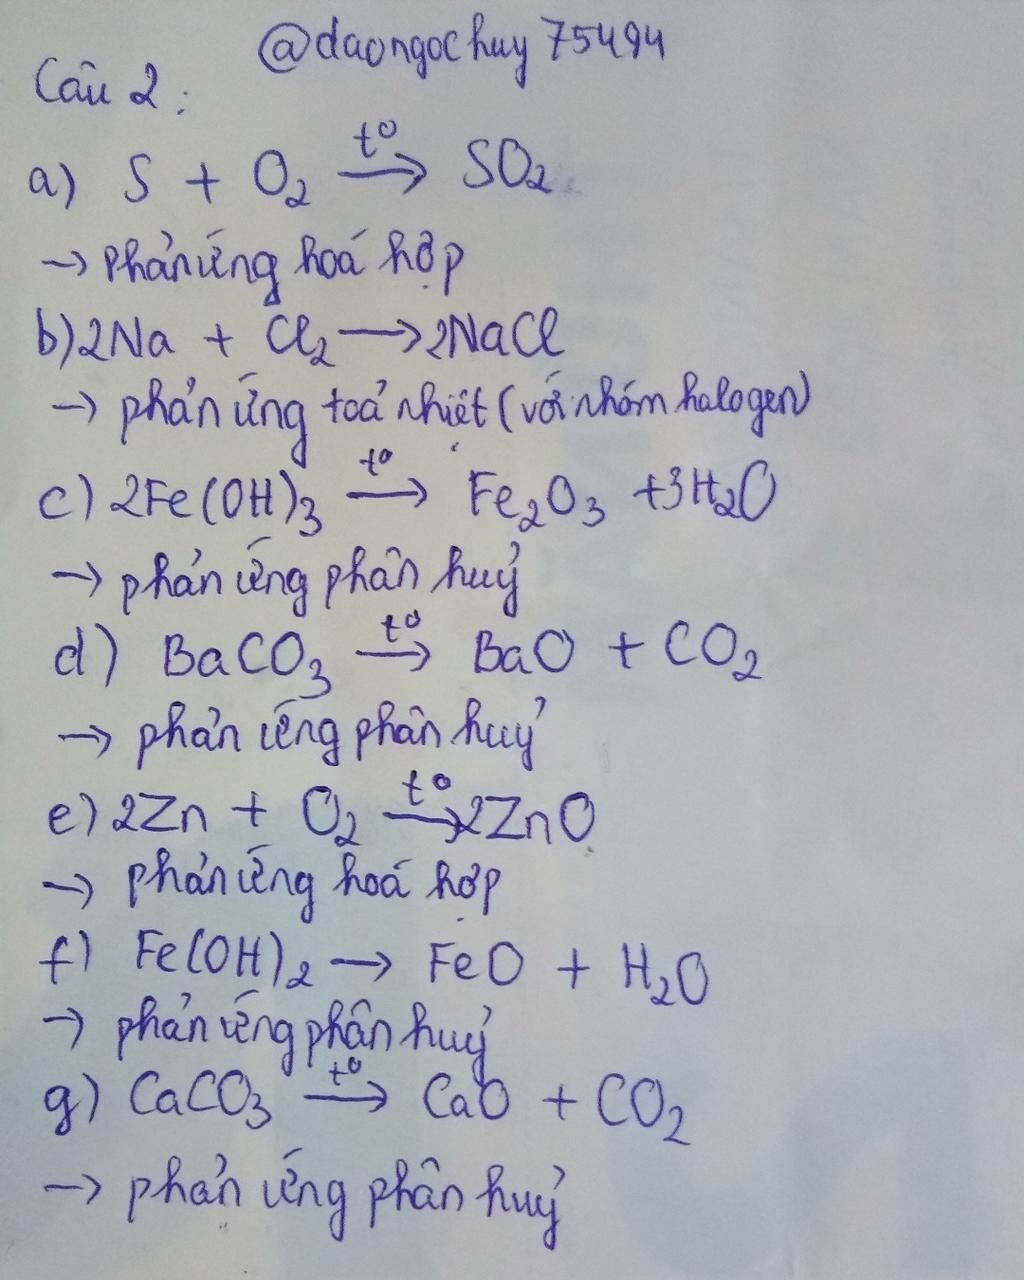 @daongochuy75494
Câu 2:
a) S + O₂ t⁰→ SO₂
→ phản ứng hoá hợp
b) 2Na + Cl₂ → 2NaCl
→ phản ứng toả nhiệt (với nhóm halogen)
c) 2Fe(OH)₃ t⁰→ Fe₂O₃ + 3H₂O
→ phản ứng phân huỷ
d) BaCO₃ t⁰→ BaO + CO₂
→ phản ứng phân huỷ
e) 2Zn + O₂ t⁰→ 2ZnO
→ phản ứng hoá hợp
f) Fe(OH)₂ → FeO + H₂O
→ phản ứng phân huỷ
g) CaCO₃ t⁰→ CaO + CO₂
→ phản ứng phân huỷ